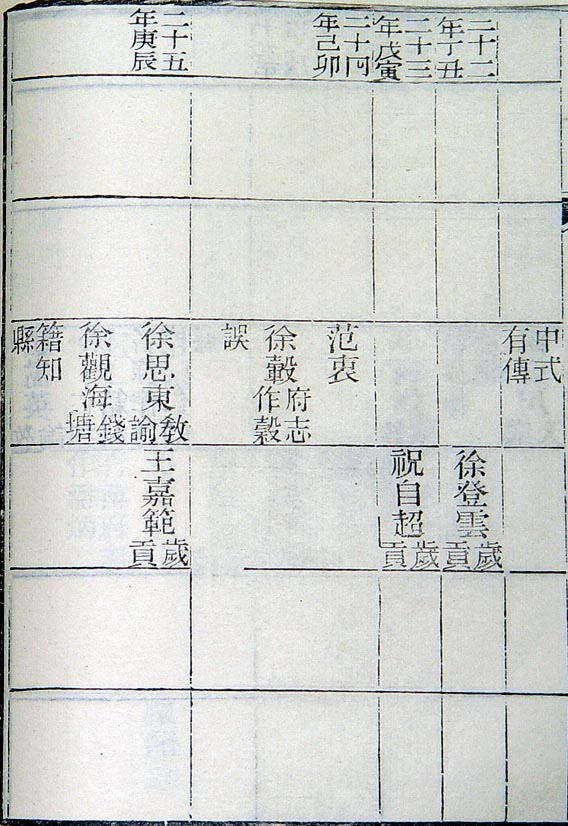 中式
有傳
二十二
年丁丑
徐登雲歲
貢
二十三
年戊寅
祝自超歲
貢
二十四
年己卯
范衷
徐轂府志
作穀
誤
二十五
年庚辰
徐思東教
諭
王嘉範歲
貢
徐觀海錢
塘
籍知
縣